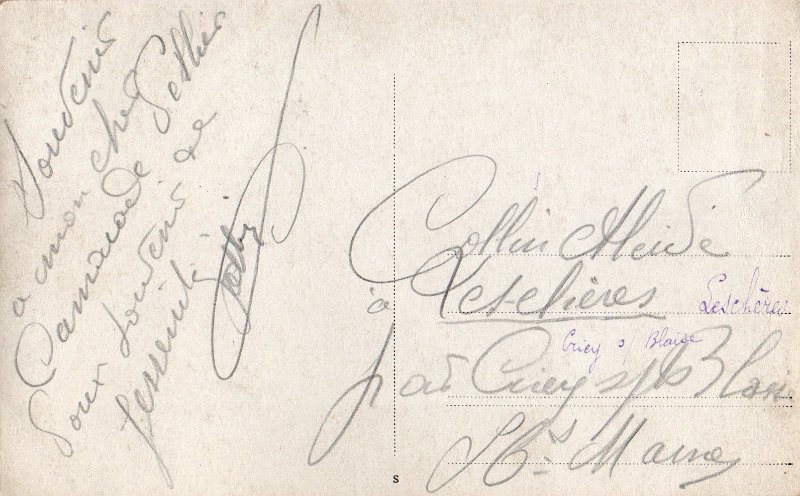 Souvenir
à mon cher
Camarade Pellier
pour Souvenir de
Collin Alcide
à Leschères
Leschères
Cirey s/ Blaise
par Cirey s/s Blaise
Hte Marne
S